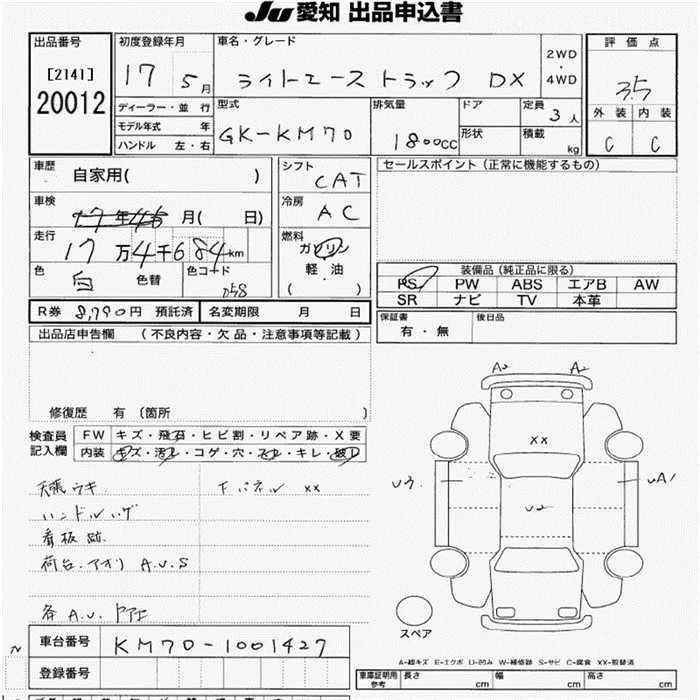 JU 愛知 出品申込書
出品番号 初度登録年月 車名・グレード 2WD・4WD 評価点
[2141] 20012 17 5月 ライトエース トラック DX 3.5
ディーラー・並行 型式 排気量 ドア 定員 3人 外装 内装
モデル年式 年 GK-KM70 1800CC 形状 積載 kg C C
ハンドル 左・右
車歴 自家用( ) シフト CAT セールスポイント(正常に機能するもの)
車検 17年46月( 日) 冷房 AC
走行 17万4千684km 燃料 ガソリン
色 白 色替 色コード 058 軽油 ( )
装備品(純正品に限る)
PS PW ABS エアB AW
SR ナビ TV 本革
R券 8,790円 預託済 名変期限 月 日 保証書 有・無 後日品
出品店申告欄 (不良内容・欠品・注意事項等記載)
修復歴 有 〔箇所 〕
検査員記入欄 FW キズ・飛石・ヒビ割・リペア跡・X要
内装 キズ・汚レ・コゲ・穴・スレ・キレ・破レ
天張ウキ 下パネル XX
ハンドルハゲ
看板跡
荷台.アオリ A.U.S
各A.U.
A U2 XX U3 UA1
スペア
A-線キズ E-エクボ U-凹み W-補修跡 S-サビ C-腐食 XX-取替済
車台番号 KM70-1001427
登録番号
車庫証明用参考 長さ cm 幅 cm 高さ cm